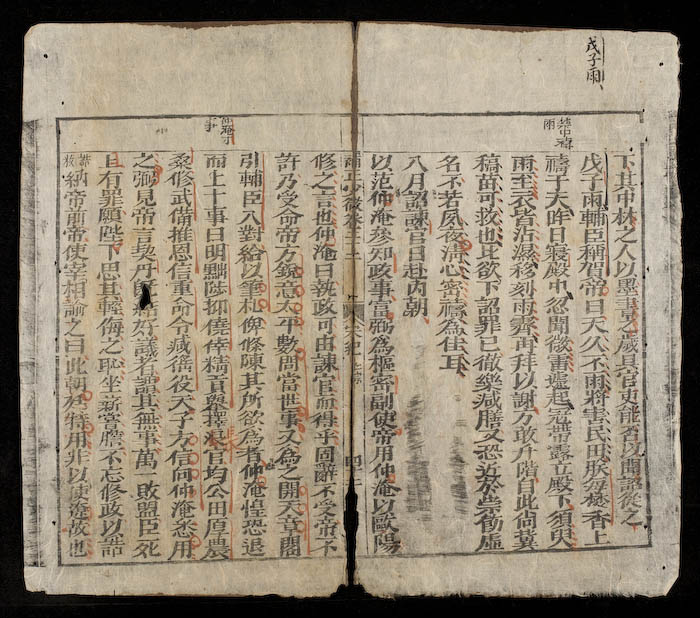 戊子雨
禱中禕
雨
下其中林之人以墨書之歲具官吏能否以聞詔從之
戊子雨輔臣稱賀帝曰天久不雨將害民田朕每焚香上
禱于天昨日寢殿中忽聞微雷遽起冠帶露立殿下須臾
雨至衣皆沾濕移刻雨霽再拜以謝方敢升階自此尚冀
稿苗可救也比欲下詔罪已徹樂減膳又恐近於崇飾虛
名不若夙夜清心密禱為佳耳
八月詔諫官日赴内朝
以范仲淹參知政事富弼為樞密副使帝用仲淹以歐陽
修之言也仲淹曰執政可由諫官而得乎固辭不受帝不
許乃受命帝方銳意太平數問當世事又為之開天章閣
引輔臣入對給以筆札俾條陳其所欲為者仲淹惶恐退
而上十事曰明黜陟抑僥倖精貢舉擇長官均公田厚農
桑修武備推恩信重命令減徭役天子方信向仲淹悉用
之弼見帝言契丹既結好議者謂其無事萬一敗盟臣死
且有罪願陛下思其輕侮之恥坐薪嘗膽不忘修政以誥
納帝前帝使宰相諭之曰此朝廷特用非以使遼故也